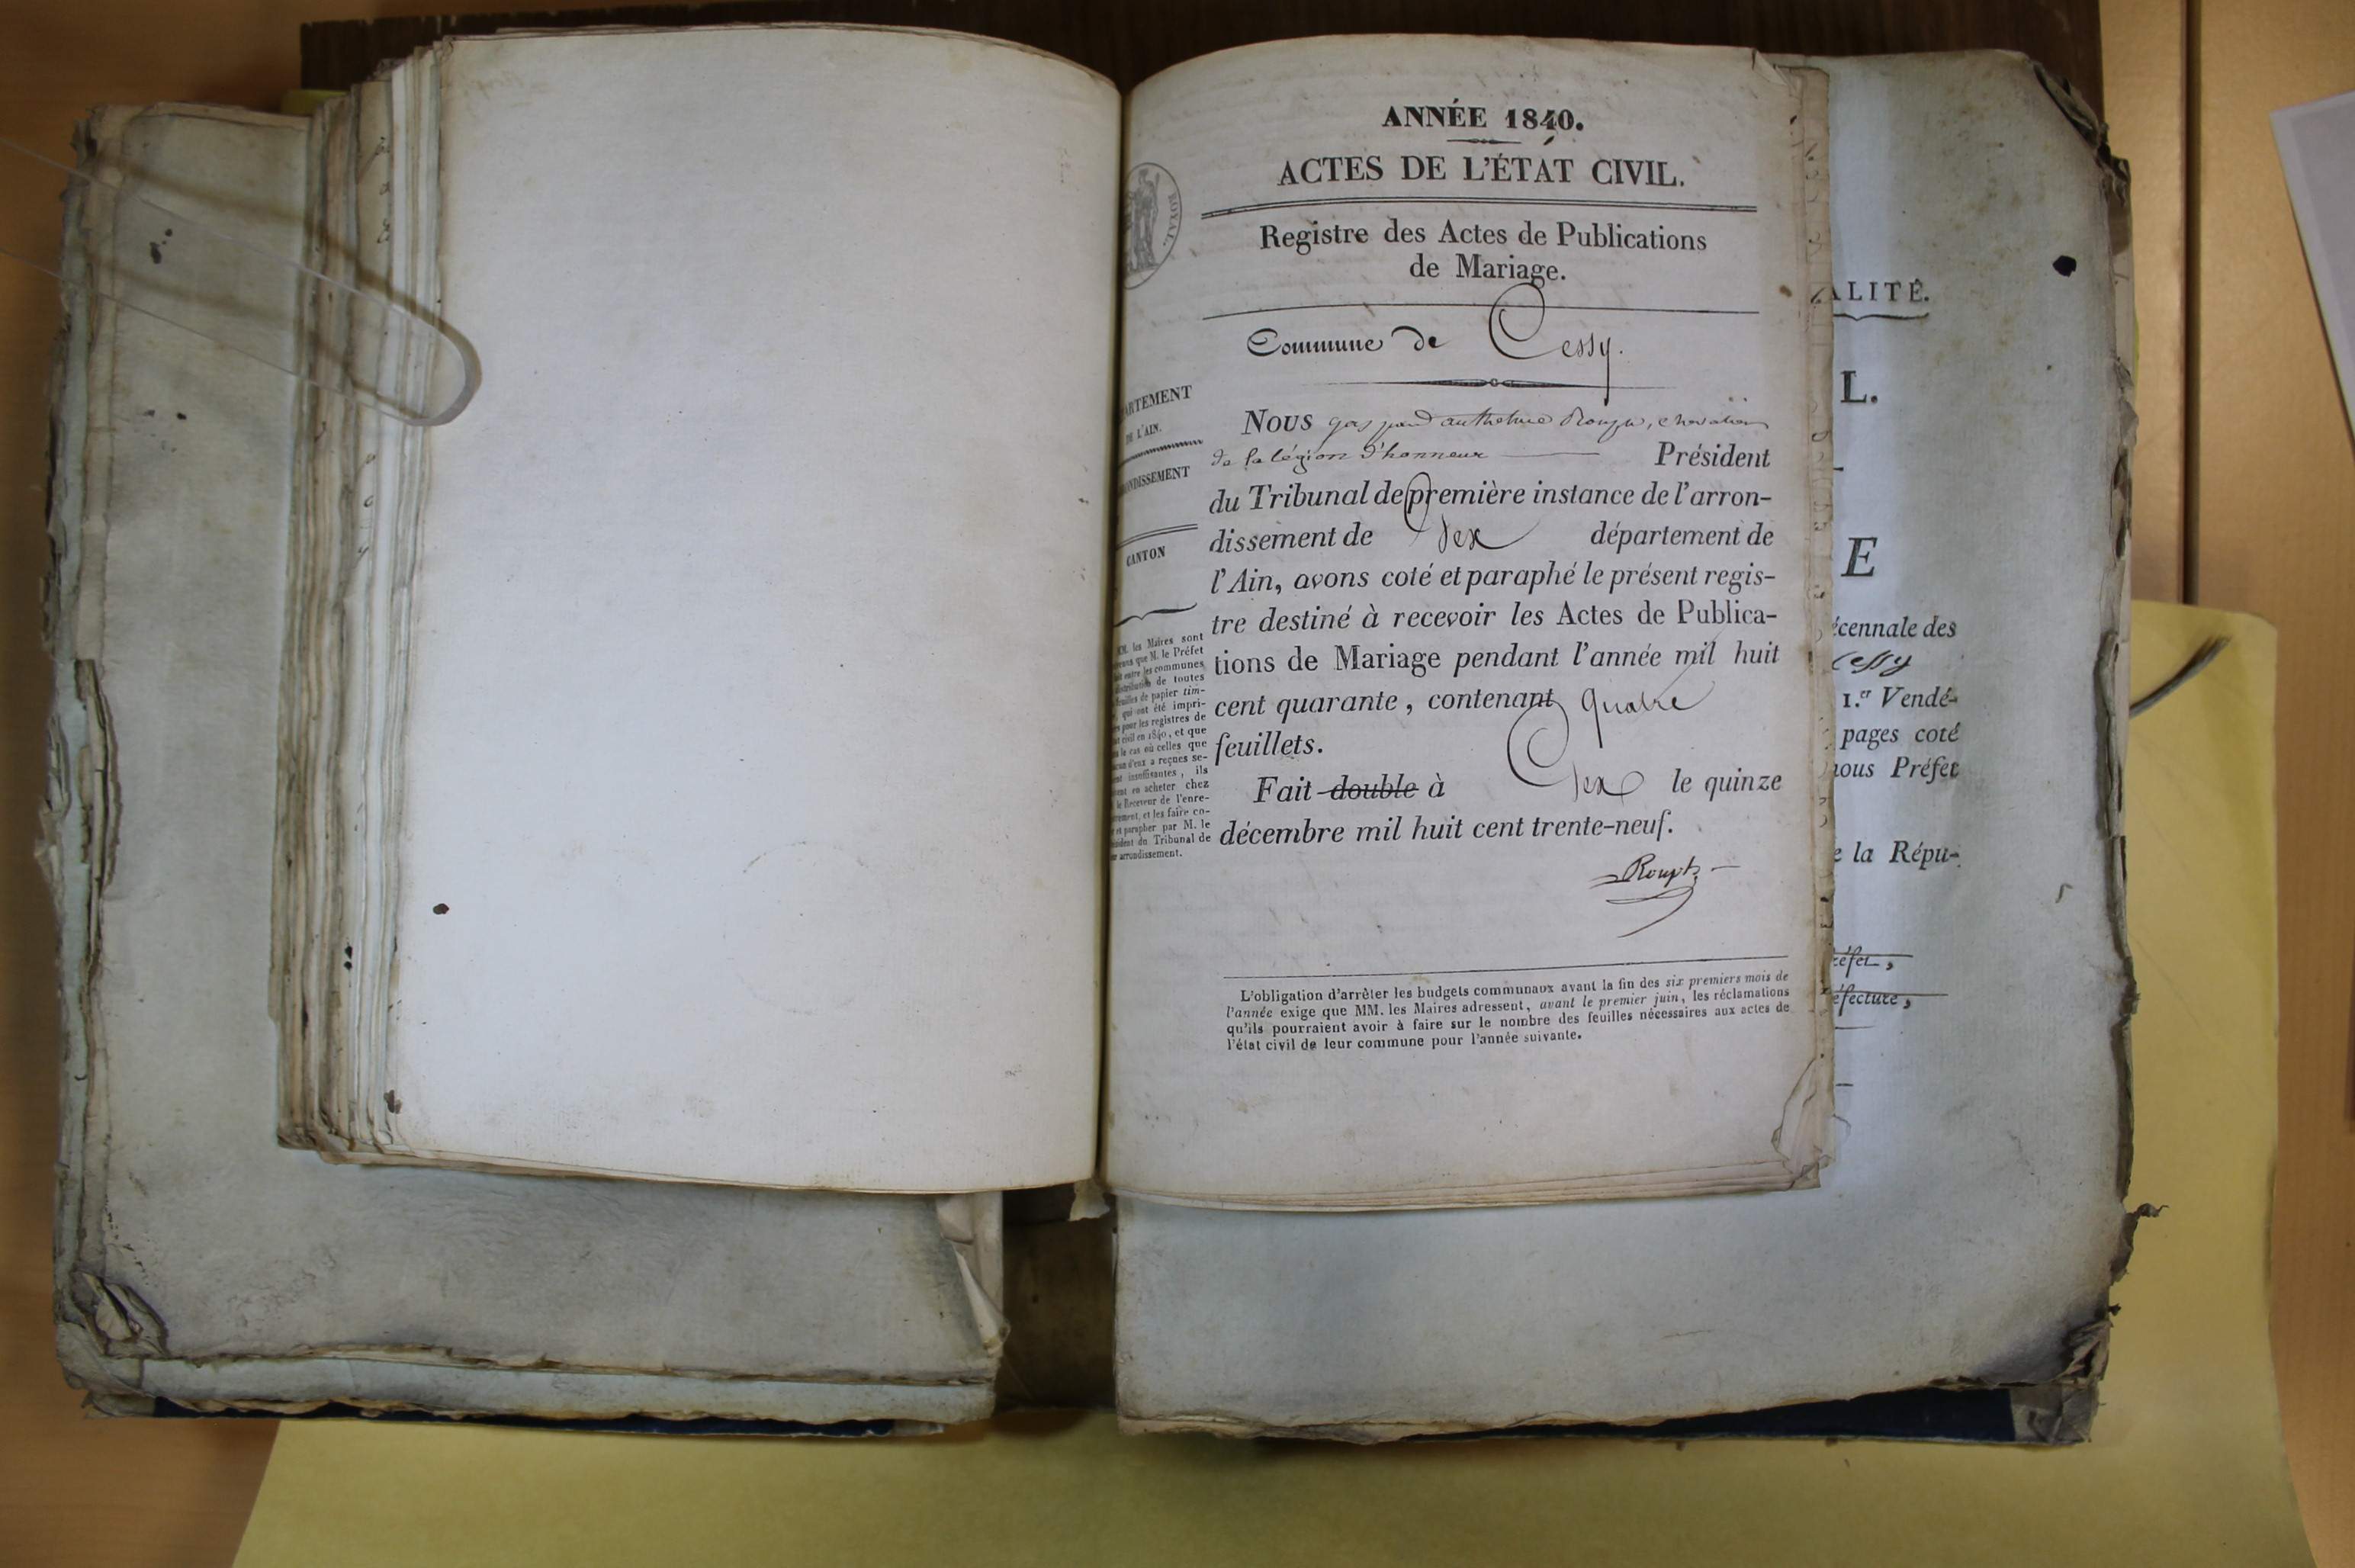 ANNÉE 1840.
ACTES DE L'ÉTAT CIVIL.
Registre des Actes de Publications
de Mariage.
Commune de Cessy.
Nous gaspard anthelme chevalier
de la légion d'honneur Président
du Tribunal de première instance de l'arron-
dissement de Gex département de
l'Ain, avons coté et paraphé le présent regis-
tre destiné à recevoir les Actes de Publica-
tions de Mariage pendant l'année mil huit
cent quarante, contenant quatre
feuillets.
Fait double à Gex le quinze
décembre mil huit cent trente-neuf.
L'obligation d'arrêter les budgets communaux avant la fin des six premiers mois de
l'année exige que MM. les Maires adressent, avant le premier juin, les réclamations
qu'ils pourraient avoir à faire sur le nombre des feuilles nécessaires aux actes de
l'état civil de leur commune pour l'année suivante.
ROYAL.
ARTEMENT
DE L'AIN.
ONDISSEMENT
CANTON
MM. les Maires sont
que M. le Préfet
entre les communes
de toutes
feuilles de papier tim-
qui ont été impri-
pour les registres de
civil en 1840, et que
le cas où celles que
d'eux a reçues se-
insuffisantes, ils
en acheter chez
le Receveur de l'enre-
et les faire co-
et parapher par M. le
du Tribunal de
arrondissement.
ALITÉ.
L.
E
écennale des
Cessy
1.er Vendé-
pages coté
nous Préfet
e la Répu-
éfet,
éfecture,